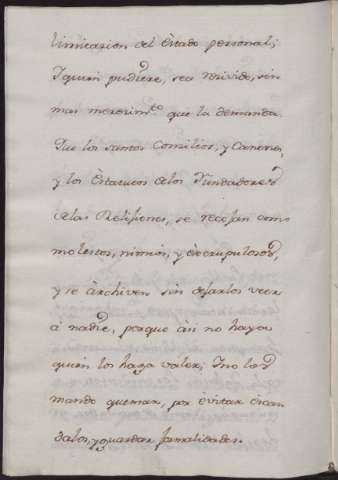 limitacion del Estado personal;
I quien pudiere, sea servido, sin
mas merecim.to que la demanda.
Que los santos Concilios, y Canones,
y los Estatutos de los Fundadores
de las Religiones, se recojan como
molestos, nimios, y escrupulosos,
y se archiven sin dejarlos veer
à nadie, porque asi no haya
quien los haga valer; I no los
mando quemar, por evitar escan
dalos, y guardar formalidades.